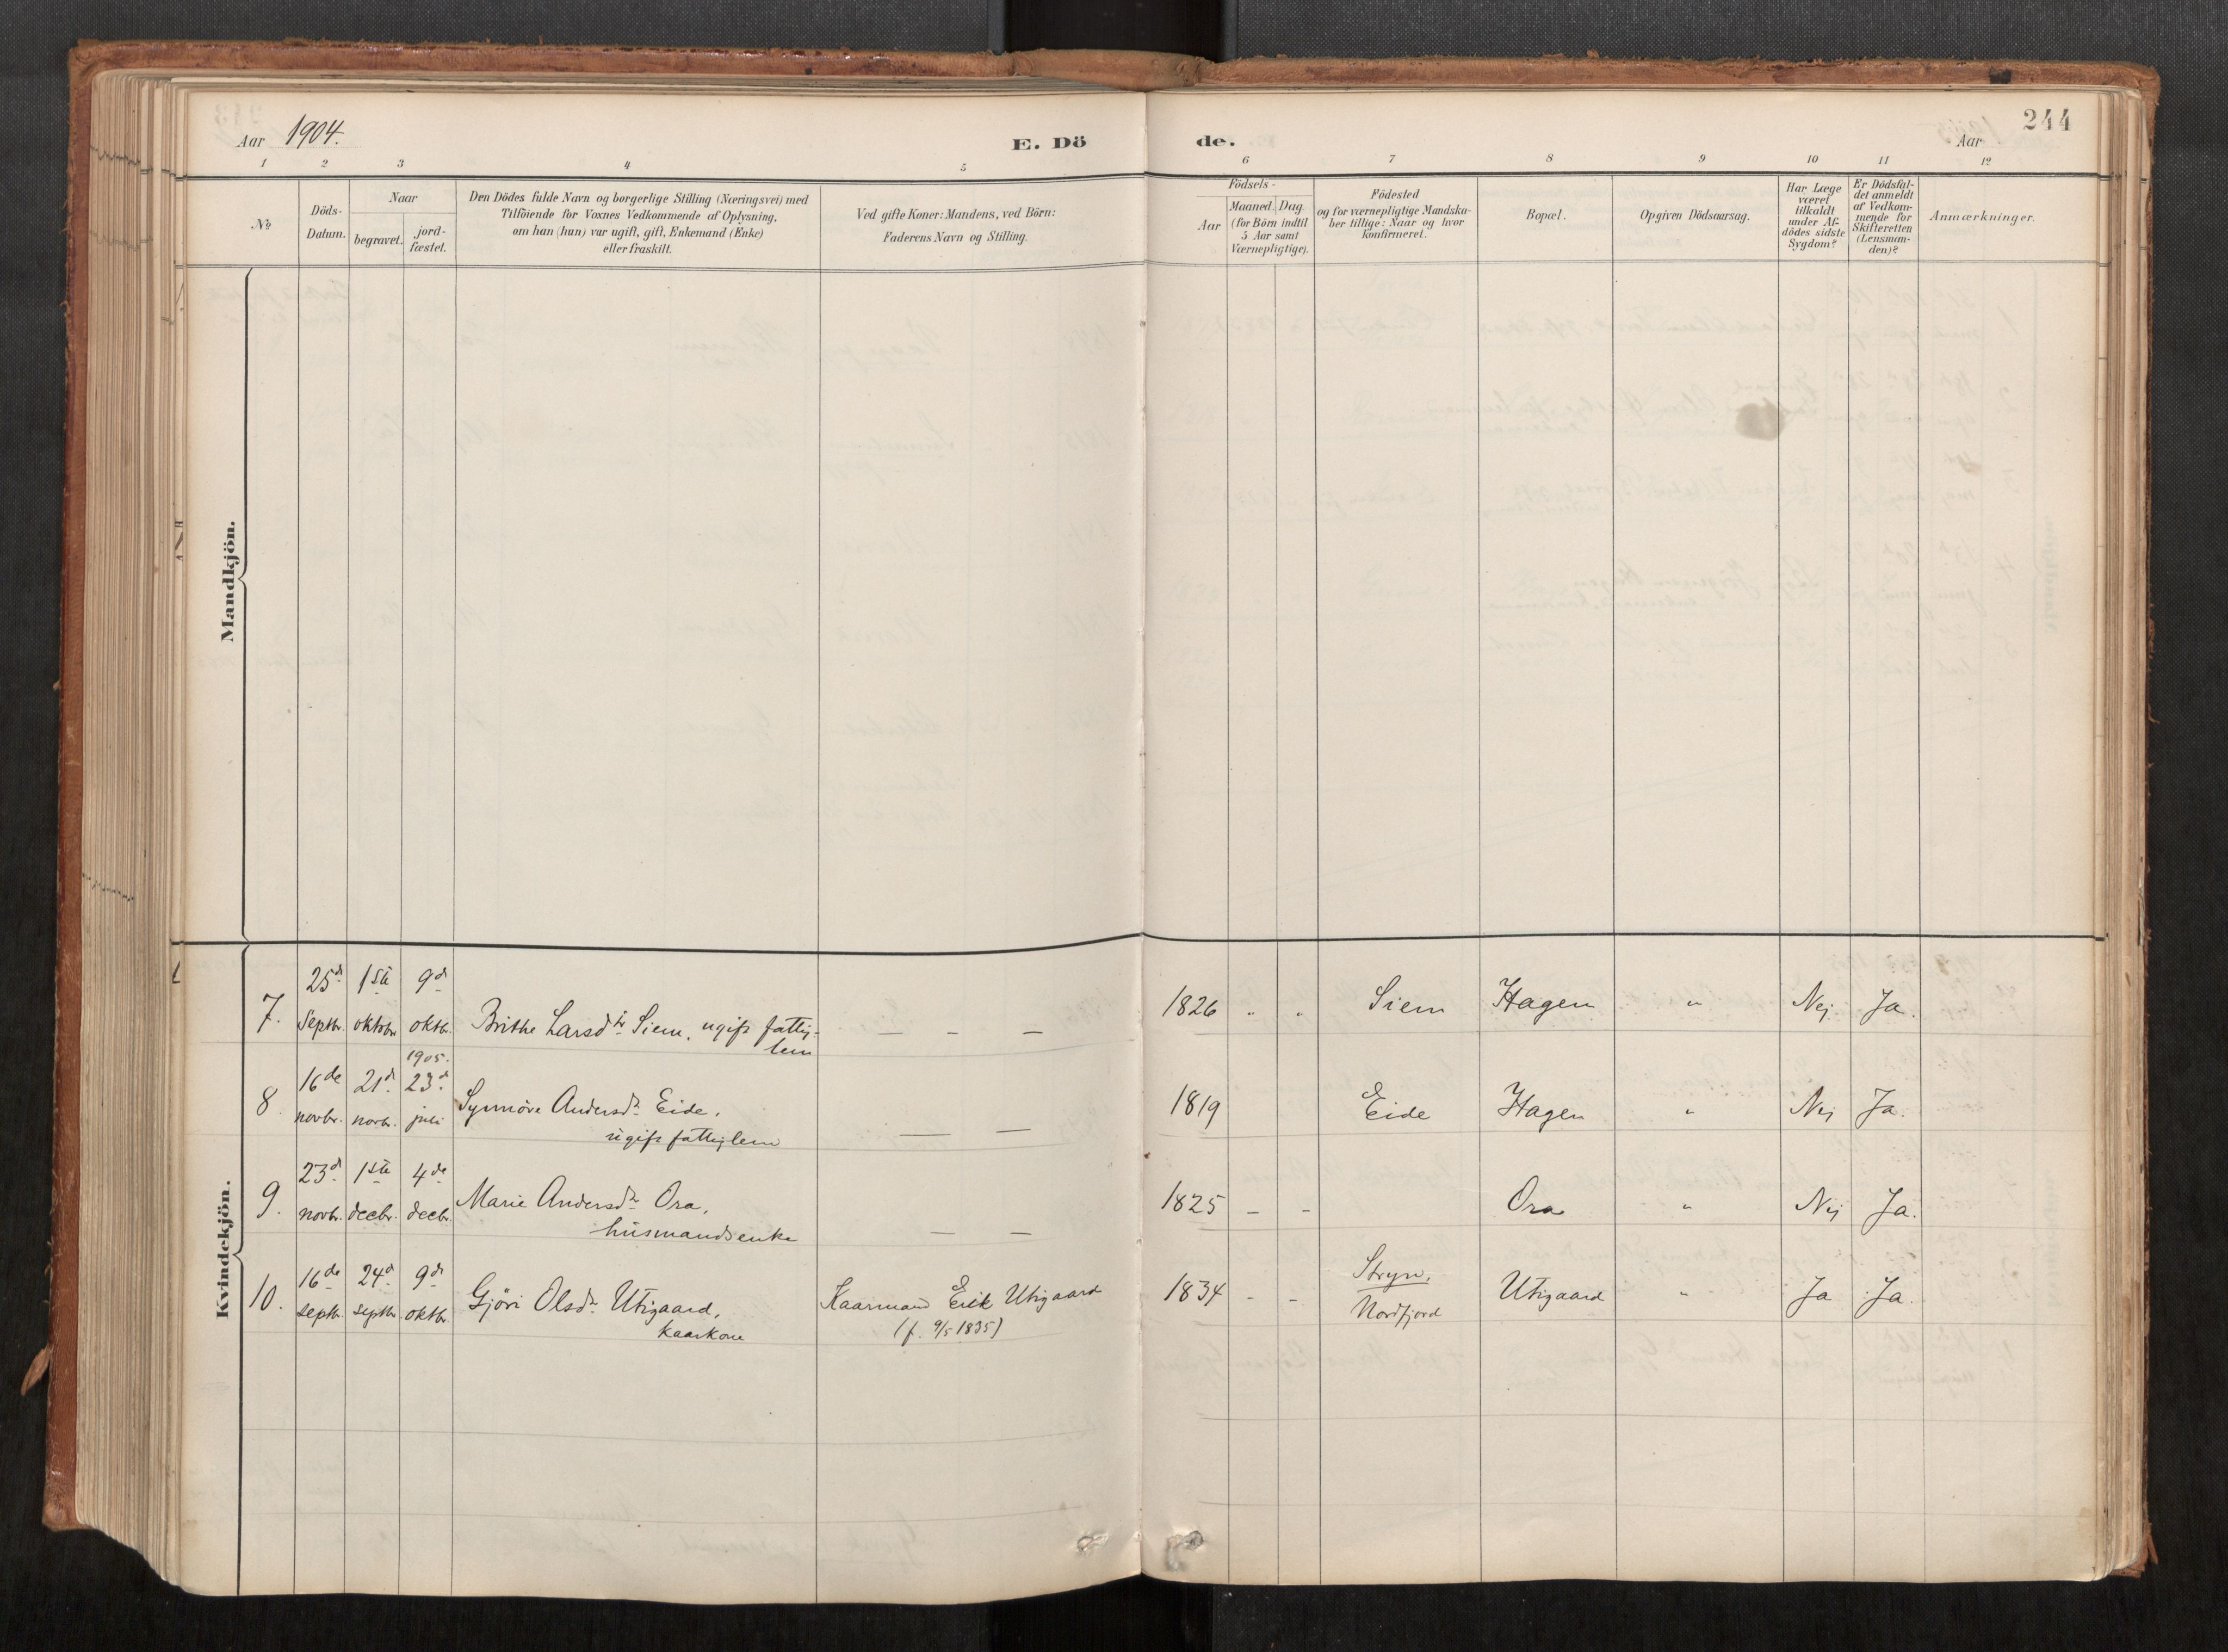 244
Aar 1904. E. Dö de. Aar
1 2 3 4 5 6 7 8 9 10 11 12
No
Döds-Datum.
Naar
begravet.
jord-fæstet.
Den Dödes fulde Navn og borgerlige Stilling (Næringsvei) med
Tilföiende for Voxnes Vedkommende af Oplysning,
om han (hun) var ugift, gift, Enkemand (Enke)
eller fraskilt.
Ved gifte Koner: Mandens, ved Börn:
Faderens Navn og Stilling.
Födsels-
Aar
Maaned. Dag.
(for Börn indtil
5 Aar samt
Værnepligtige).
Födested
og for værnepligtige Mandska-
ber tillige: Naar og hvor
konfirmeret.
Bopæl.
Opgiven Dödsaarsag.
Har Læge
været
tilkaldt
under Af-
dödes sidste
Sygdom?
Er Dödsfal-
det anmeldt
af Vedkom-
mende for
Skifteretten
(Lensman-
den)?
Anmærkninger.
Mandkjön.
Kvindekjön.
25d 1ste 9d
7. Septbr. oktobr. oktbr. Brithe Larsdtr Siem, ugift fattig-
lem — - — 1826 " " Siem Hagen " Nej Ja.
1905.
16de 21d 23d
8. novbr. novbr. juli Synnöve Andersdr. Eide,
ugift fattiglem — — 1819 Eide Hagen " Nej Ja.
23d 1ste 4de
9. novbr. decbr. decbr. Marie Andersdr. Ora,
husmandsenke — — 1825 - - Ora " Nej Ja.
16de 24d 9de
10. septbr. septbr. oktbr. Gjöri Olsdr. Utigaard,
kaarkone
Kaarmand Erik Utigaard
(f. 9/5 1835)
1834 - - Stryn,
Nordfjord
Utigaard " Ja Ja.